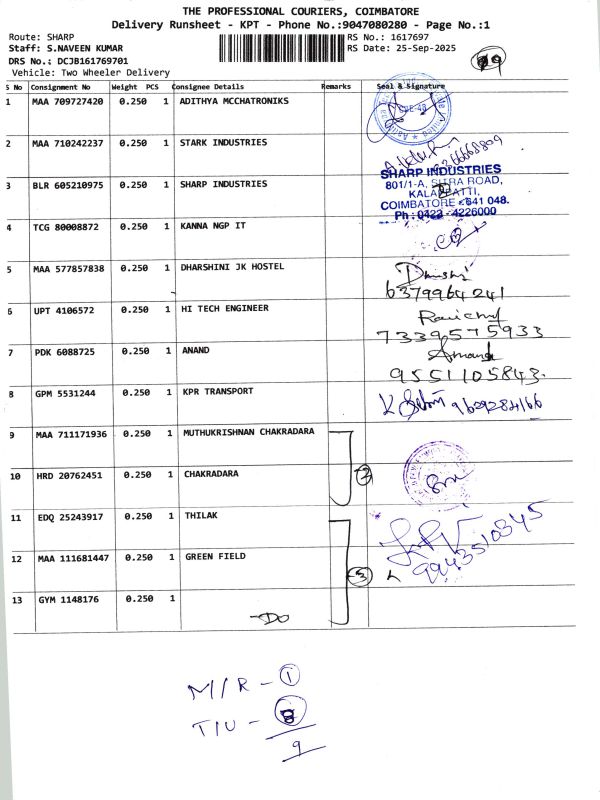 THE PROFESSIONAL COURIERS, COIMBATORE
Delivery Runsheet - KPT - Phone No.:9047080280 - Page No.:1
Route: SHARP
RS No.: 1617697
Staff: S.NAVEEN KUMAR
RS Date: 25-Sep-2025
DRS No.: DCJB161769701
Vehicle: Two Wheeler Delivery
S No Consignment No Weight PCS Consignee Details Remarks Seal & Signature
1 MAA 709727420 0.250 1 ADITHYA MCCHATRONIKS
2 MAA 710242237 0.250 1 STARK INDUSTRIES
3 BLR 605210975 0.250 1 SHARP INDUSTRIES
SHARP INDUSTRIES
801/1-A, SITRA ROAD,
KALAPATTI,
COIMBATORE - 641 048.
Ph : 0422 - 4226000
4 TCG 80008872 0.250 1 KANNA NGP IT
5 MAA 577857838 0.250 1 DHARSHINI JK HOSTEL
6379964241
6 UPT 4106572 0.250 1 HI TECH ENGINEER
7339575933
7 PDK 6088725 0.250 1 ANAND
Anand
9551105843.
8 GPM 5531244 0.250 1 KPR TRANSPORT
9629284166
9 MAA 711171936 0.250 1 MUTHUKRISHNAN CHAKRADARA
10 HRD 20762451 0.250 1 CHAKRADARA
2
11 EDQ 25243917 0.250 1 THILAK
9943510345
12 MAA 111681447 0.250 1 GREEN FIELD
3
13 GYM 1148176 0.250 1
-DO
M/R - 1
T/U - 8
9